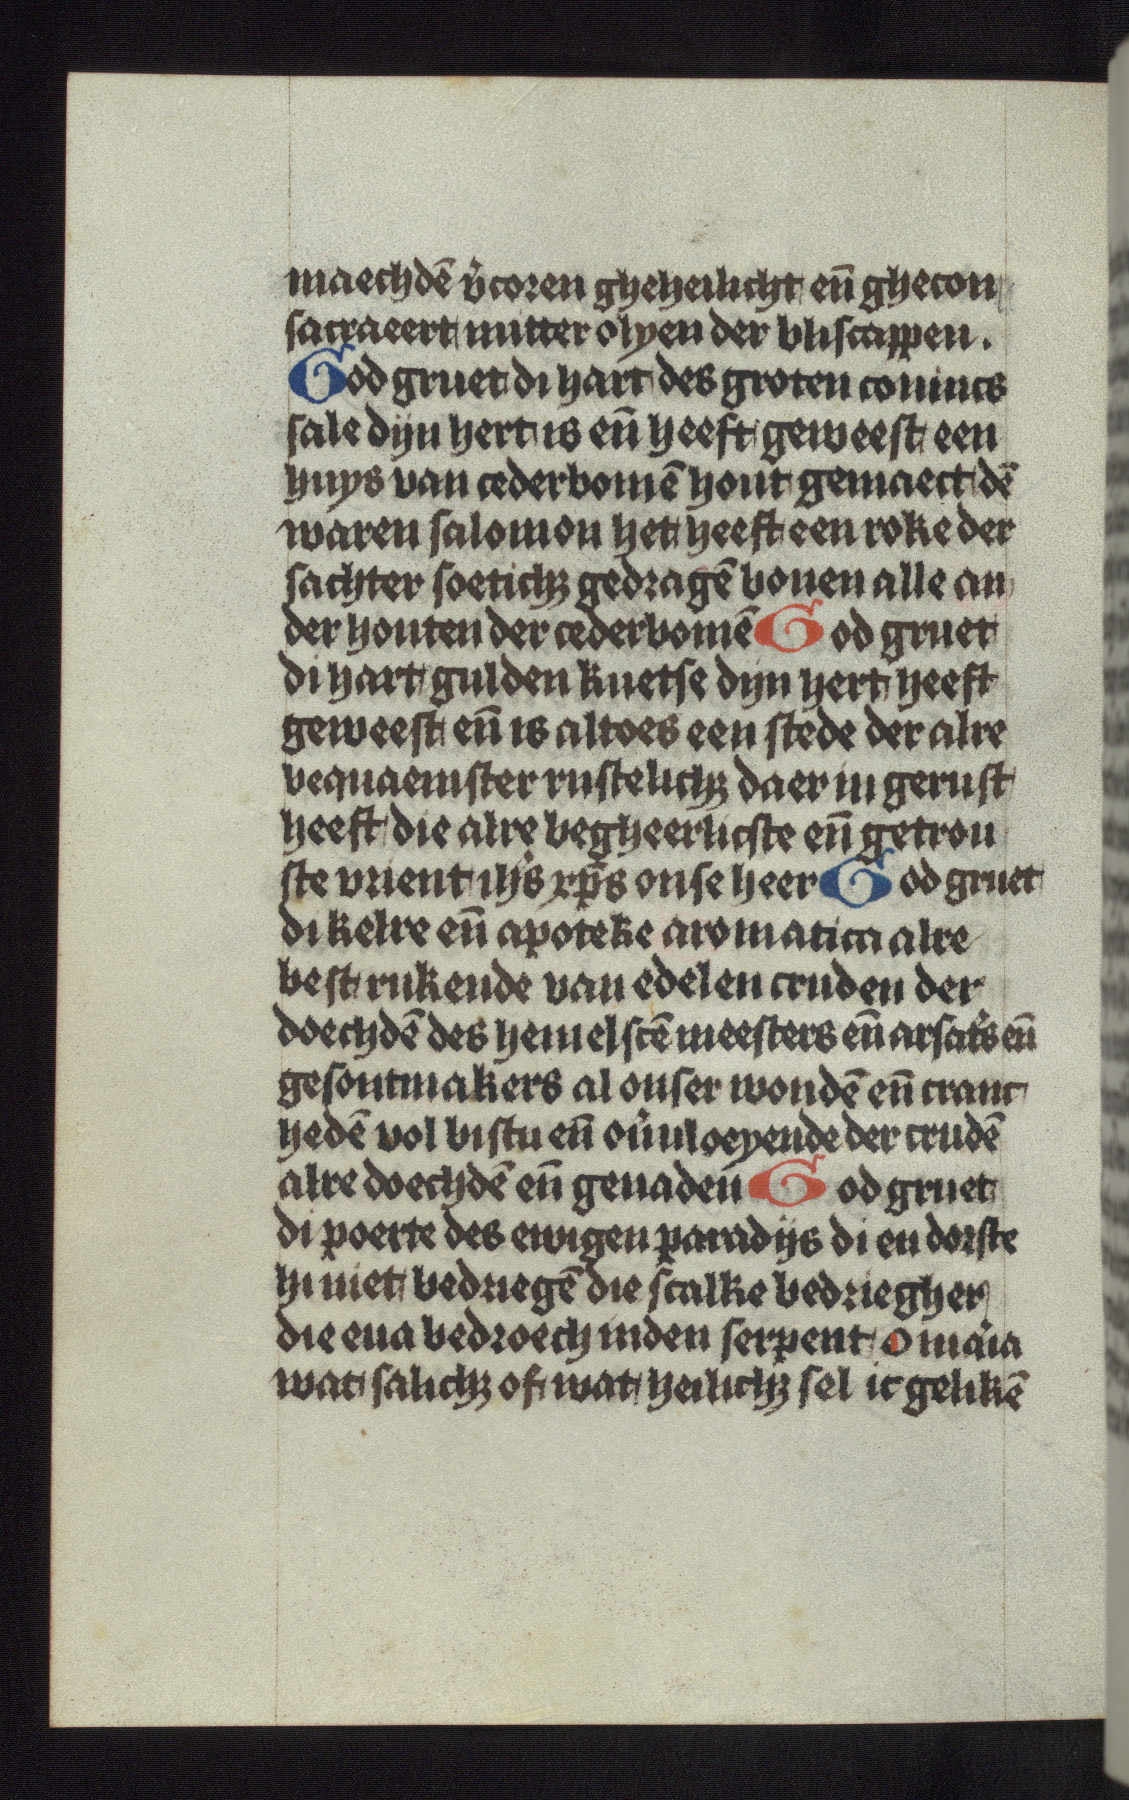 maechdē v̉coren gheheilicht en̄ ghecon
sacraeert mitter olyen der bliscappen.
God gruet di hart des groten conincs
sale dijn hert is en̄ heeft geweest een
huys van cederbomē hout gemaect dē
waren salomon het heeft een roke der
sachter soetichꝫ gedragē bouen alle an
der houten der cederbomē God gruet
di hart gulden kuetse dijn hert heeft
geweest en̄ is altoes een stede der alre
bequaemster rustelichꝫ daer in gerust
heeft die alre begheerlicste en̄ getrou
ste vrient ih̓s xp̄s onse heer God gruet
di kelre en̄ apoteke aromatica alre
best rukende van edelen cruden der
doechdē des hemelscē meesters en̄ arsat̓s en̄
gesontmakers al onser wondē en̄ cranc
hedē vol bistu en̄ ou̓uloeyende der crudē
alre doechdē en̄ genaden God gruet
di poerte des ewigen paradijs di en dorste
hi niet bedriegē die scalke bedriegher
die eua bedroech inden serpent O mar̓ia
wat salichꝫ of wat heilichꝫ sel ic gelikē